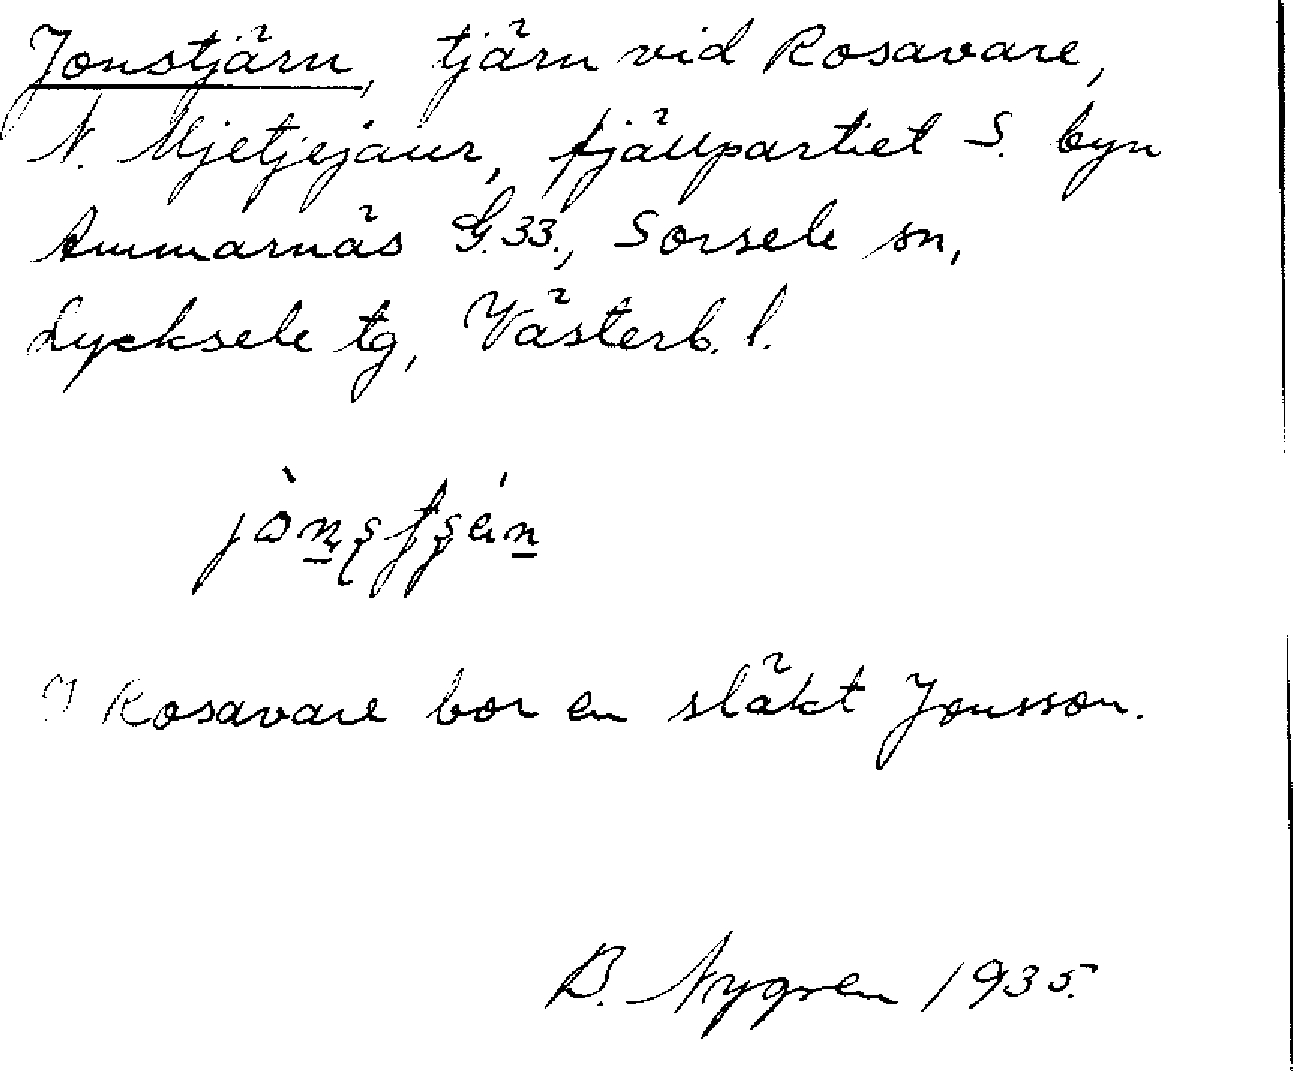 Jonstjärn, tjärn vid Rosavare,
N. Mjetjejaur, fjällpartiet S. byn
Ammarnäs G.33., Sorsele sn,
Lycksele tg, Västerb. l.
I Rosavare bor en släkt Jonsson.
B. Nygren 1935.